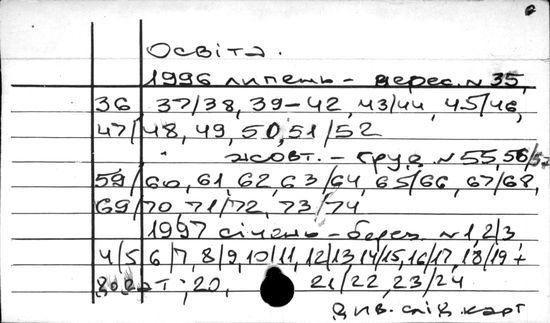 Освіта.
1996 липень - верес. № 35,
36 37/38, 39-42, 43/44, 45/46,
47/48, 49, 50, 51/52
жовт. - груд. № 55, 56/57
59/60, 61, 62, 63/64, 65/66, 67/68,
69/70, 71/72, 73/74
1997 січень - берез. № 1, 2/3
4/5 6/7, 8/9, 10/11, 12/13, 14/15, 16/17, 18/19 +
додат; 20, 21/22, 23/24
див. слід. карт